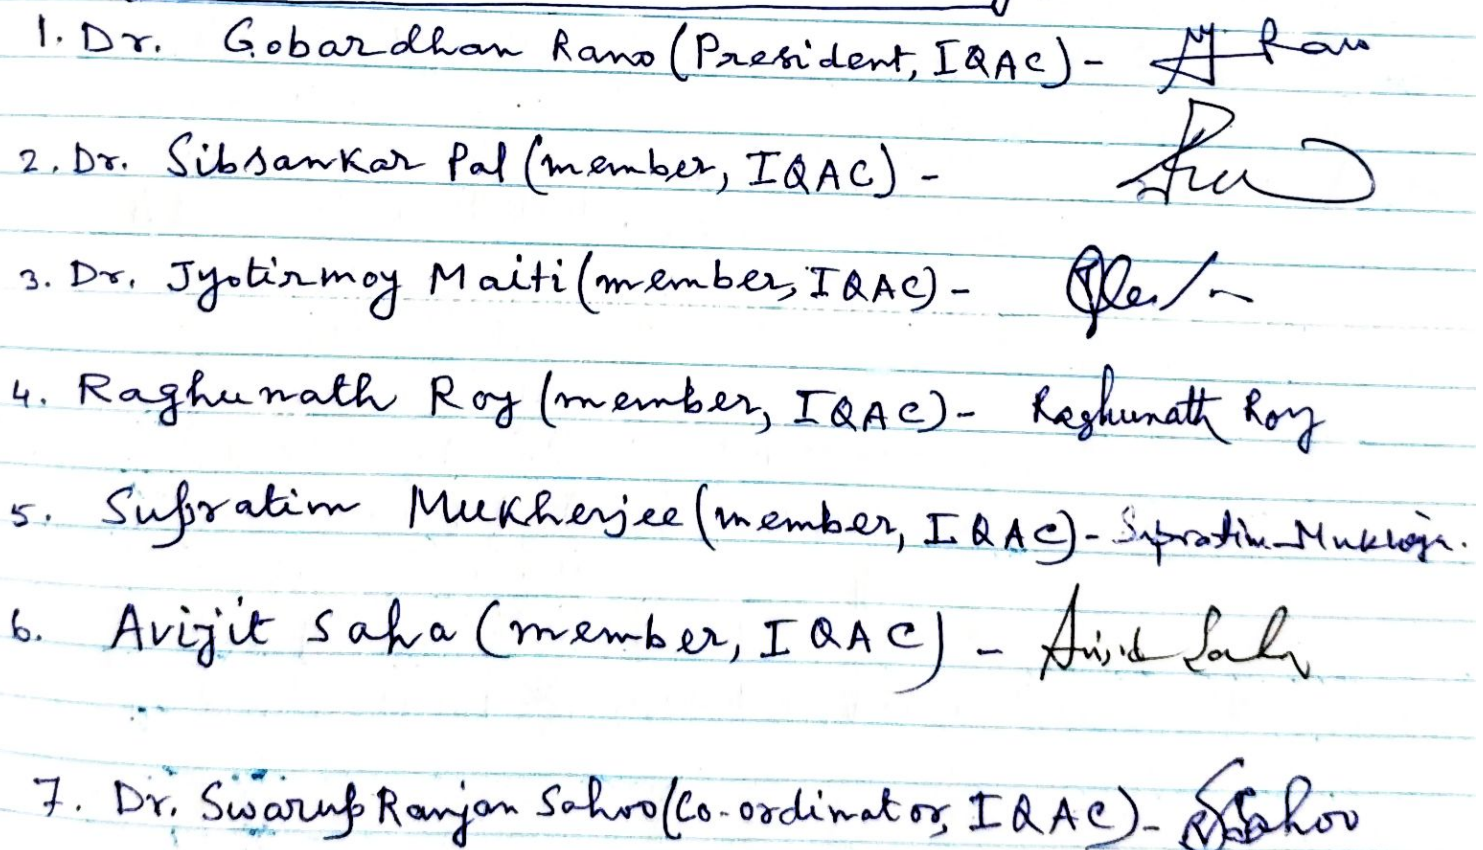 1. Dr. Gobardhan Rano (President, IQAC) -
2. Dr. Sibsankar Pal (member, IQAC) -
3. Dr. Jyotirmoy Maiti (member, IQAC) -
4. Raghunath Roy (member, IQAC) - Raghunath Roy
5. Supratim Mukherjee (member, IQAC) - Supratim Mukherjee.
6. Avijit Saha (member, IQAC) - Avijit Saha
7. Dr. Swarup Ranjan Sahoo (Co-ordinator, IQAC) - SRSahoo